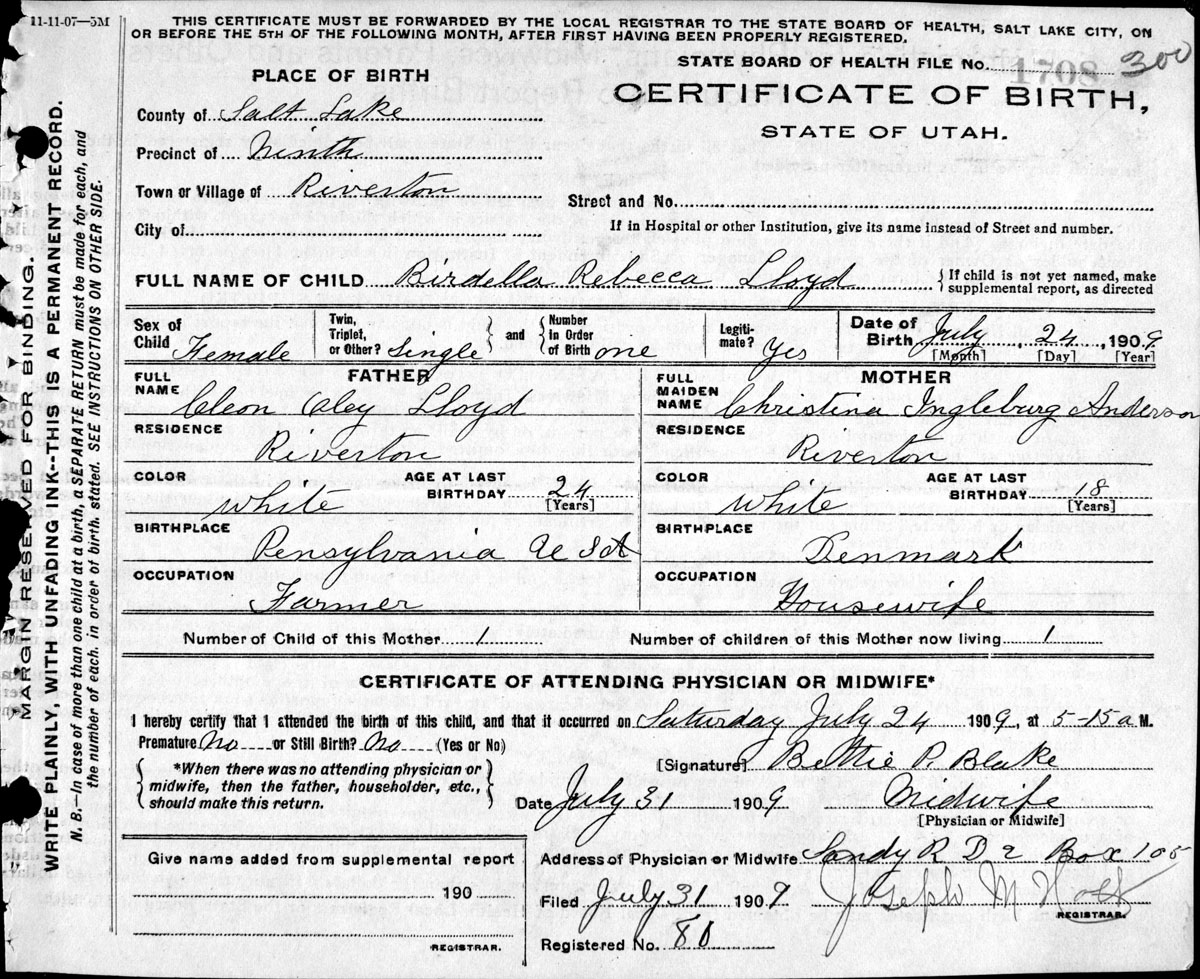 11-11-07—5M
THIS CERTIFICATE MUST BE FORWARDED BY THE LOCAL REGISTRAR TO THE STATE BOARD OF HEALTH, SALT LAKE CITY, ON
OR BEFORE THE 5TH OF THE FOLLOWING MONTH, AFTER FIRST HAVING BEEN PROPERLY REGISTERED.
STATE BOARD OF HEALTH FILE No. 1708 300
PLACE OF BIRTH
CERTIFICATE OF BIRTH,
STATE OF UTAH.
County of Salt Lake
Precinct of Ninth
Town or Village of Riverton
Street and No.
City of
If in Hospital or other Institution, give its name instead of Street and number.
FULL NAME OF CHILD Birdella Rebecca Lloyd { If child is not yet named, make
supplemental report, as directed
Sex of Child Female
Twin, Triplet, or Other? Single } and { Number In Order of Birth one
Legitimate? Yes
Date of Birth July 24, 1909
[Month] [Day] [Year]
FATHER
FULL NAME Cleon Oley Lloyd
RESIDENCE
Riverton
COLOR white AGE AT LAST BIRTHDAY 24 [Years]
BIRTHPLACE
Pensylvania U S A
OCCUPATION
Farmer
MOTHER
FULL MAIDEN NAME Christina Ingleburg Anderson
RESIDENCE
Riverton
COLOR white AGE AT LAST BIRTHDAY 18 [Years]
BIRTHPLACE
Denmark
OCCUPATION
Housewife
Number of Child of this Mother 1 Number of children of this Mother now living 1
CERTIFICATE OF ATTENDING PHYSICIAN OR MIDWIFE*
I hereby certify that I attended the birth of this child, and that it occurred on Saturday July 24 1909, at 5-15 a M.
Premature No or Still Birth? No (Yes or No)
{ *When there was no attending physician or
midwife, then the father, householder, etc.,
should make this return. }
[Signature] Bettie P. Blake
Date July 31 1909 Midwife
[Physician or Midwife]
Give name added from supplemental report
190
REGISTRAR.
Address of Physician or Midwife Sandy R D 2 Box 105
Filed July 31 1909 Joseph M Holt
REGISTRAR.
Registered No. 80
MARGIN RESERVED FOR BINDING.
WRITE PLAINLY, WITH UNFADING INK--THIS IS A PERMANENT RECORD.
N. B.—In case of more than one child at a birth, a SEPARATE RETURN must be made for each, and
the number of each, in order of birth, stated. SEE INSTRUCTIONS ON OTHER SIDE.